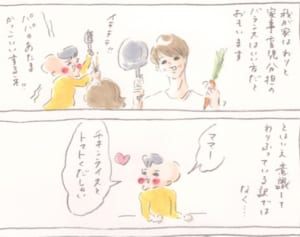 我が家はわりと
家事育児分担の
バランスはいい方だと
おもいます
イテテテ…
パパのあたま
かっこいいするネ!!
とはいえ意識して
わりふっている訳では
なく…
ママー
チキンライスと
トマトくだしゃい